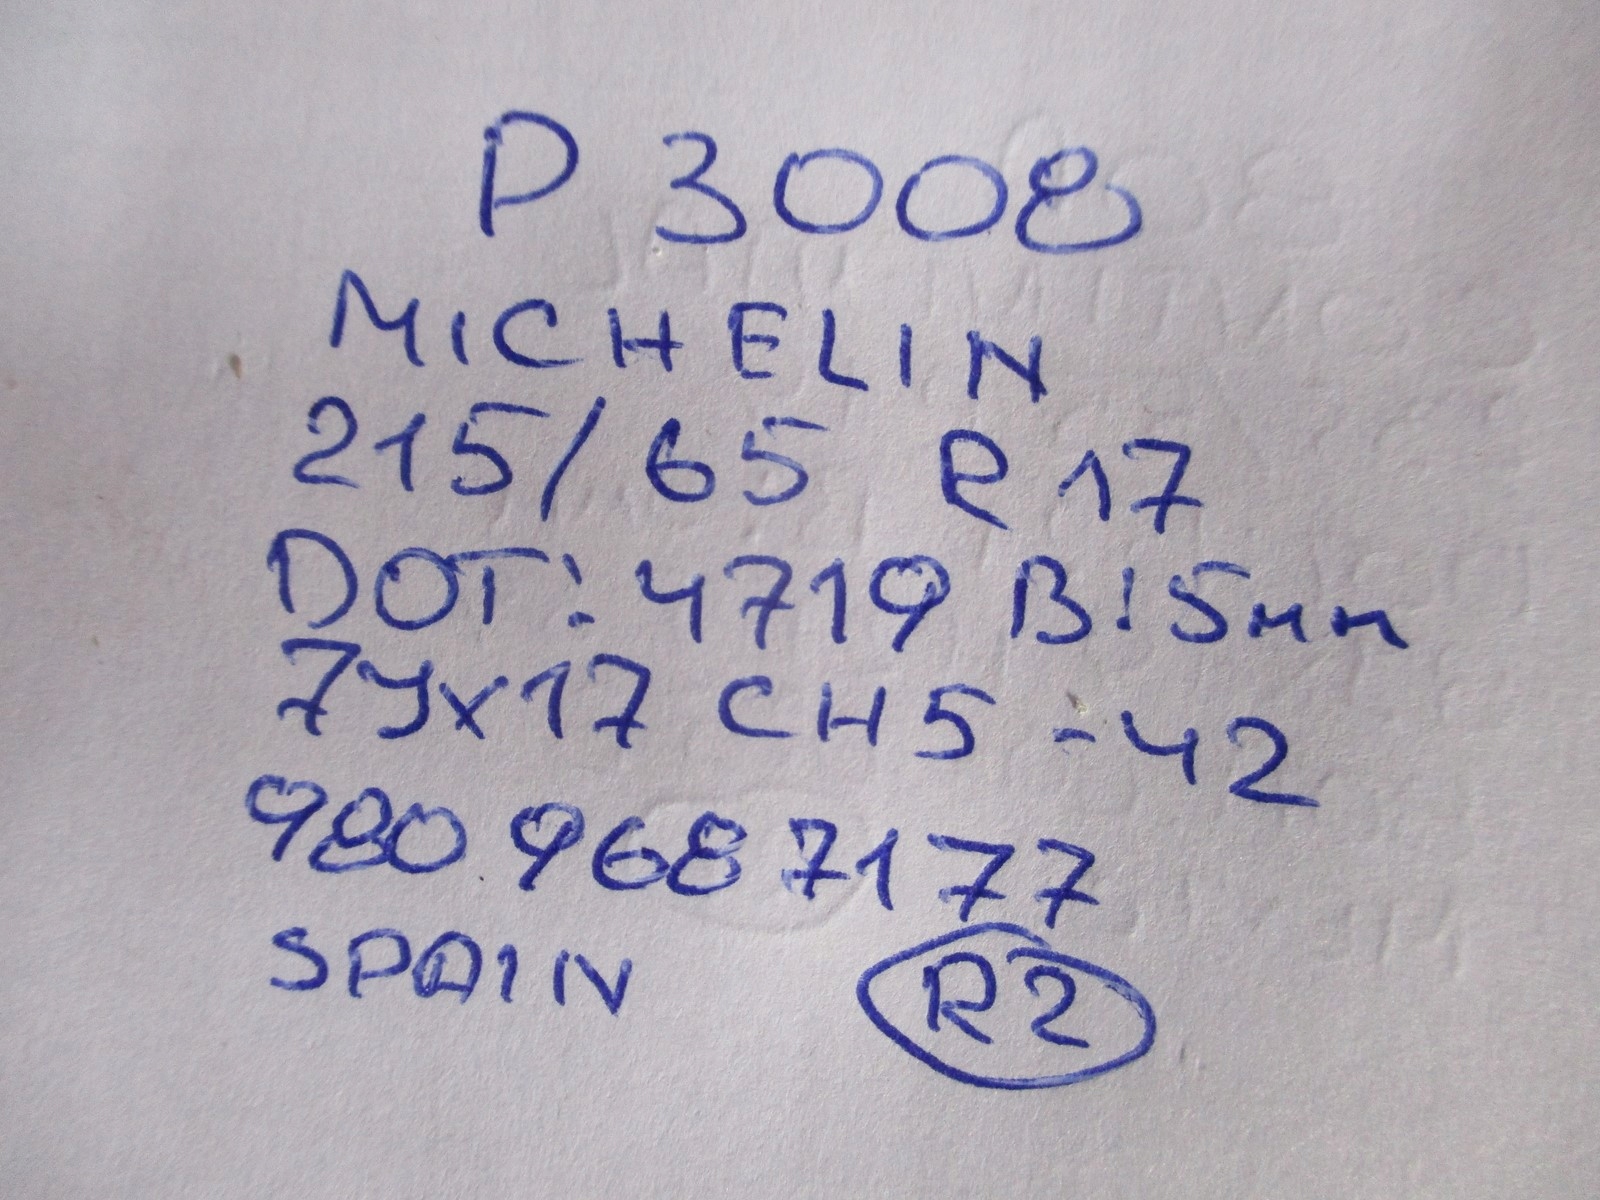 P 3008
MICHELIN
215/65 R17
DOT: 4719 B:5mm
7Jx17 CH5-42
980 968 7177
SPAIN R2